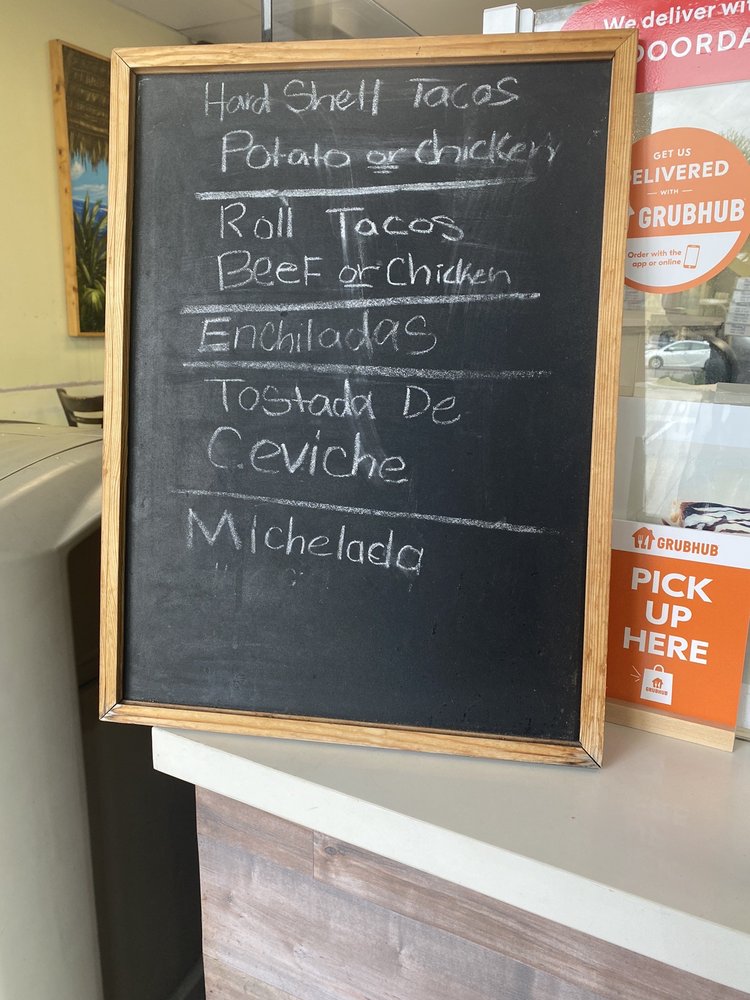 Hard Shell Tacos
Potato or chicken
Roll Tacos
Beef or Chicken
Enchiladas
Tostada De
Ceviche
Michelada
We deliver wit
DOORDA
GET US
ELIVERED
WITH
GRUBHUB
Order with the
app or online
GRUBHUB
PICK
UP
HERE
GRUBHUB